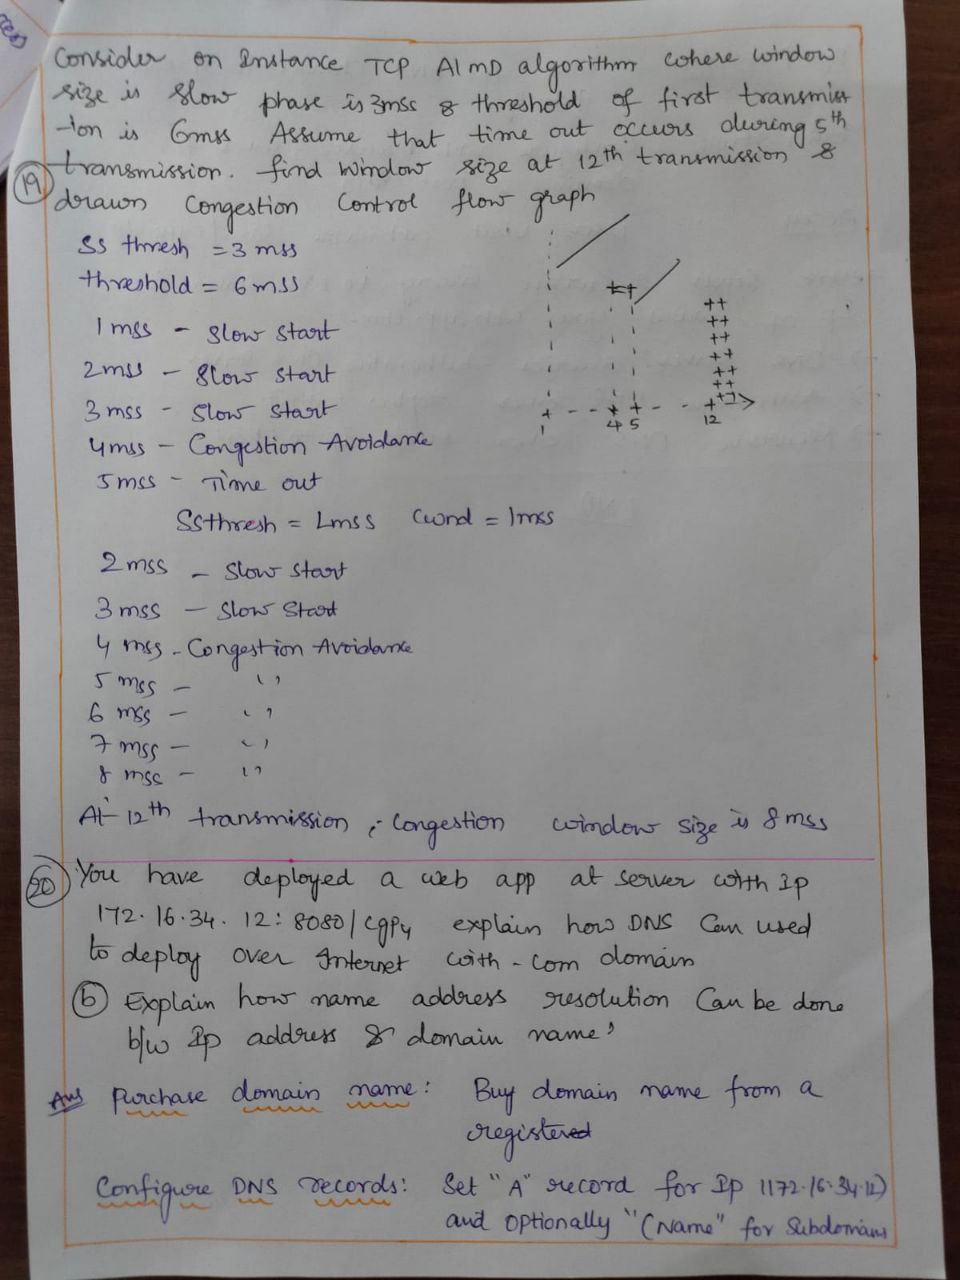 Consider on Instance TCP AIMD algorithm where window
size is slow phase is 3mss & threshold of first transmiss
-ion is 6mss Assume that time out occurs during 5th
transmission. find window size at 12th transmission &
19
drawn Congestion Control flow graph
SS thresh = 3 mss
threshold = 6 mss
1 mss - slow start
2 mss - slow start
3 mss - slow start
4 mss - Congestion Avoidance
5 mss - Time out
SSthresh = 2mss Cwnd = 1mss
2 mss - slow start
3 mss - slow start
4 mss - Congestion Avoidance
5 mss - "
6 mss - "
7 mss - "
8 mss - "
1 4 5 12
At 12th transmission, congestion window size is 8 mss
20 You have deployed a web app at server with Ip
172.16.34.12:8080/cgpy explain how DNS Can used
to deploy over Internet with .com domain
b Explain how name address resolution Can be done
b/w Ip address & domain name?
Ans Purchase domain name: Buy domain name from a
registered
Configure DNS records: Set "A" record for Ip (172.16.34.12)
and optionally "(Name" for Subdomains